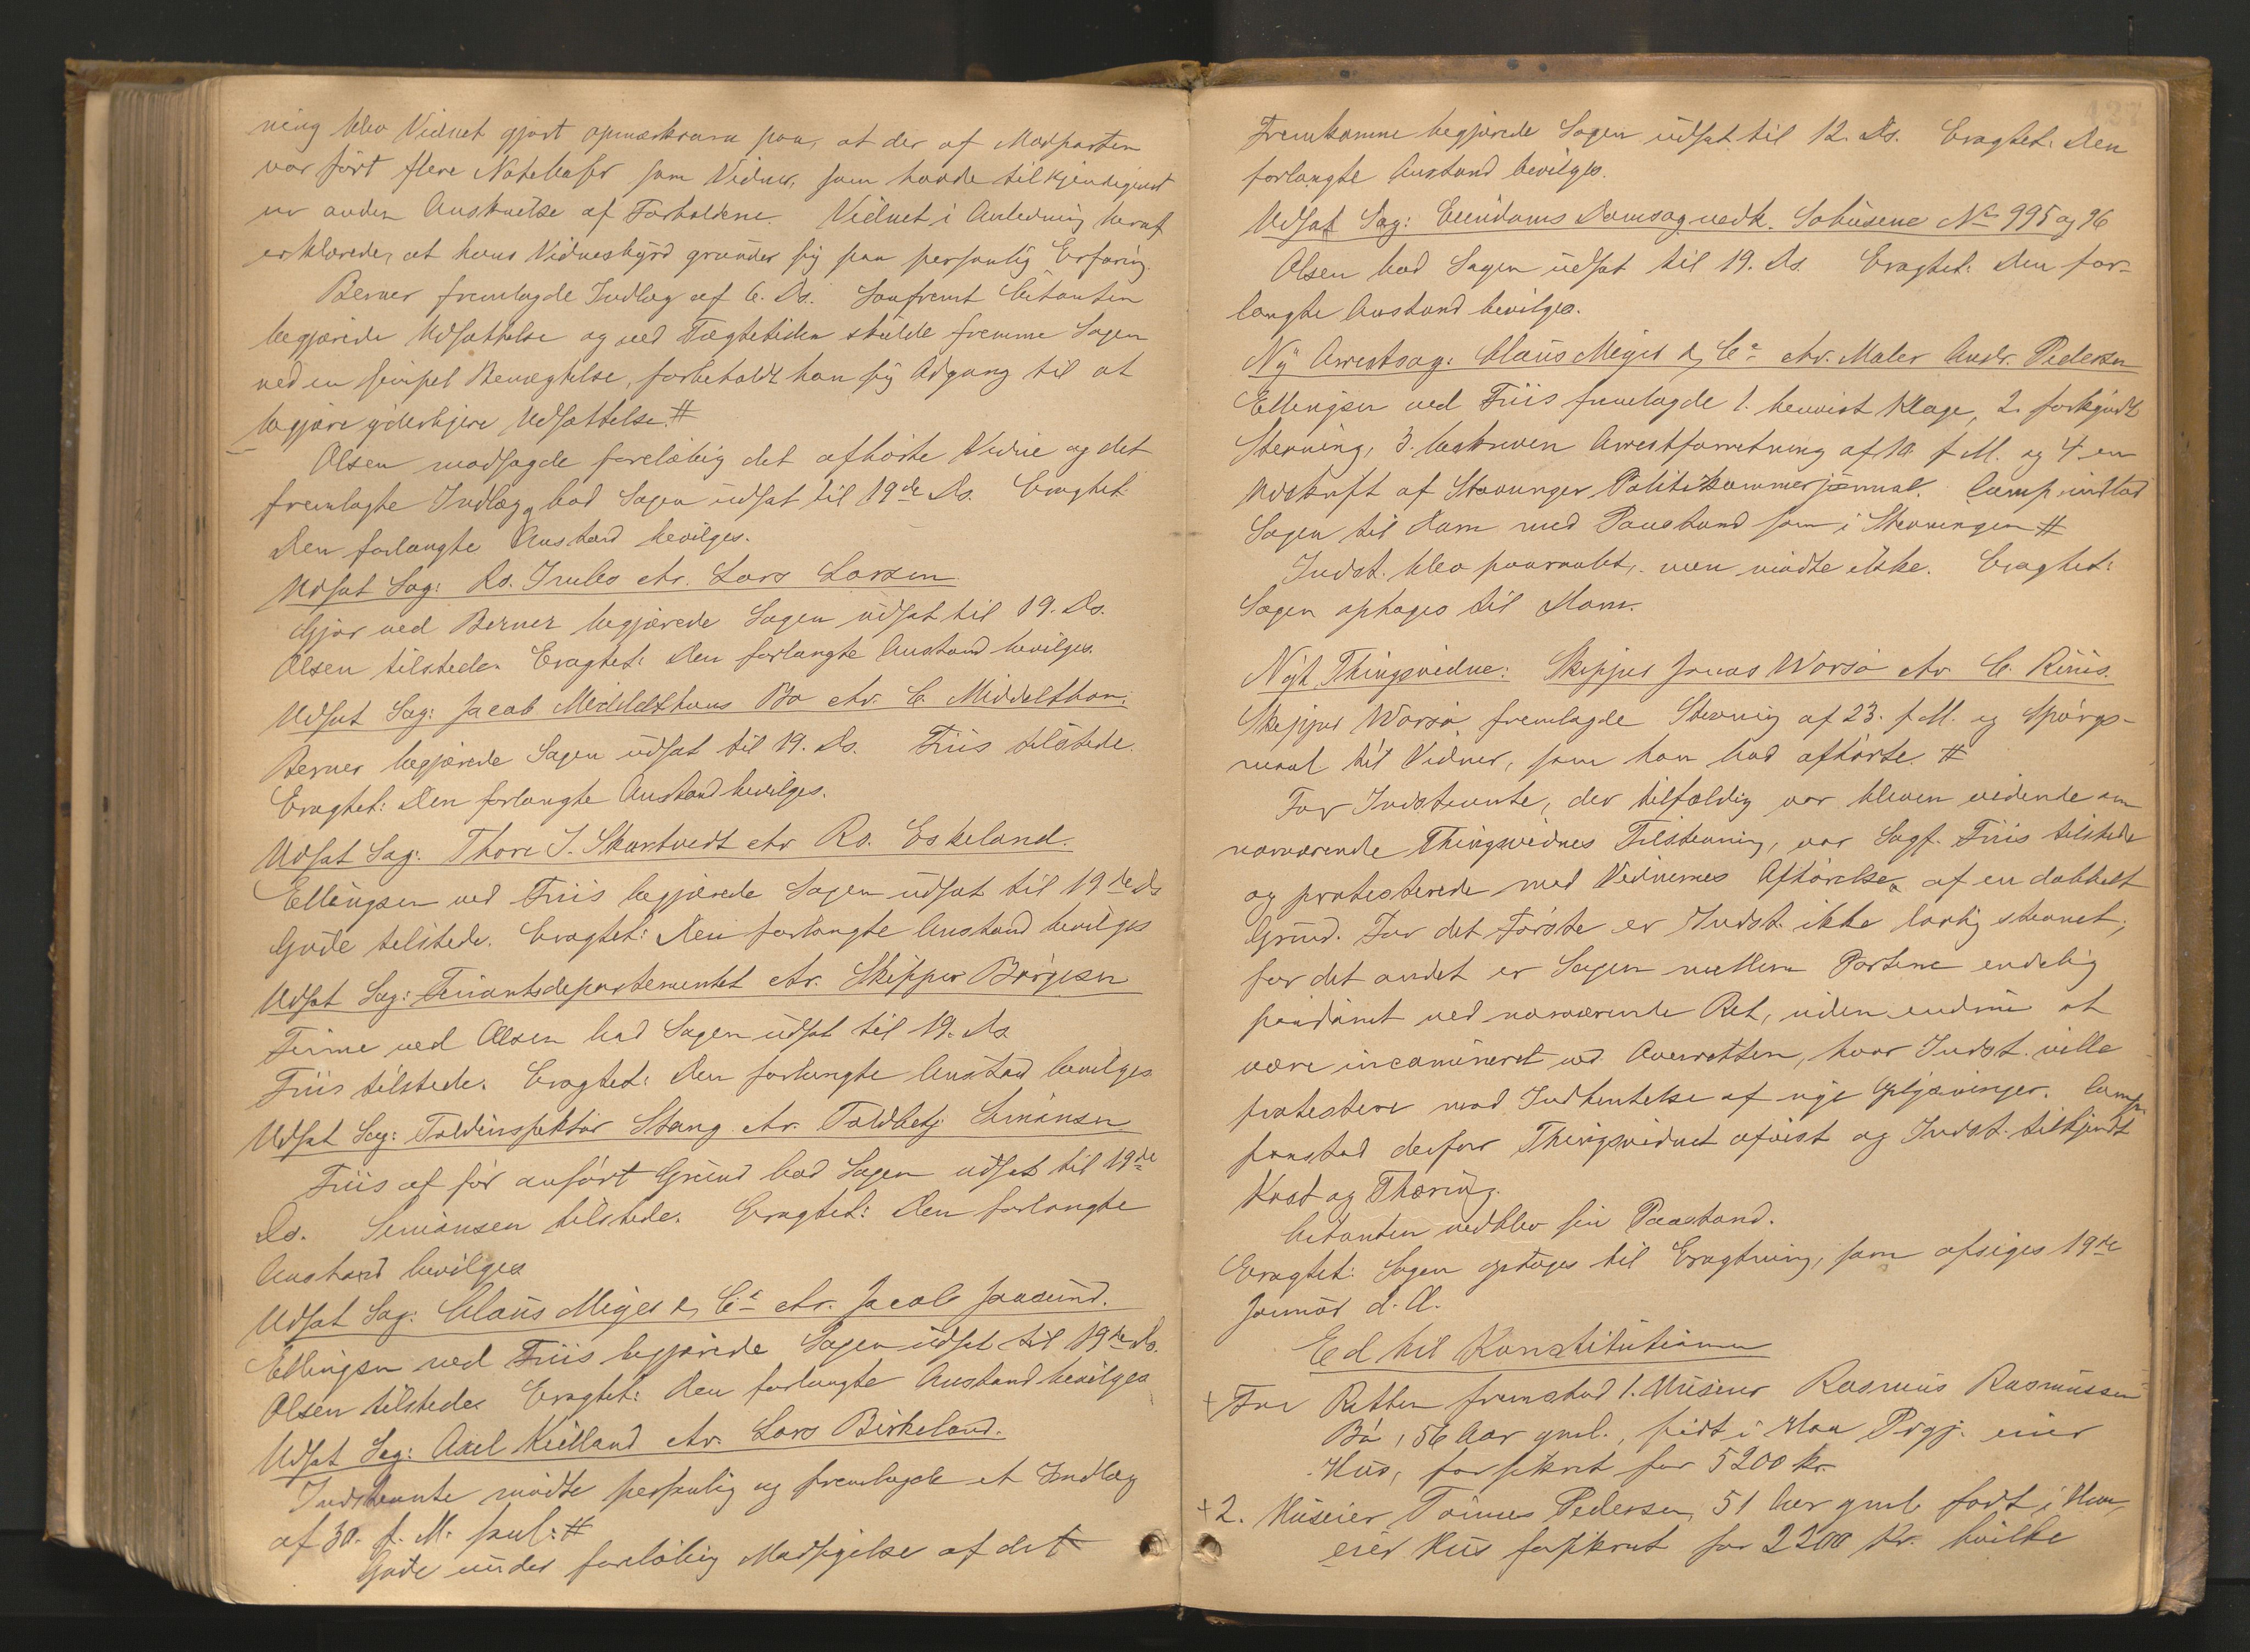 ning blev Vidnet gjort opmærksom paa, at der af Modparten
var ført flere Notabler som Vidner, som havde tilkjendegivet
en anden Anskuelse af Forholdene. Vidnet i Anledning heraf
erklærede, at hans Vidnesbyrd grunder sig paa personlig Erfaring.
Berner fremlagde Indlæg af 6. Ds. Saafremt Citanten
begjærede Udsættelse og ved Tægtetiden skulde fremme Sagen
ved en simpel Benægtelse, forbeholdt han sig Adgang til at
begjære yderligere Udsættelse. #
Olsen modsagde foreløbig det afhørte Vidne og det
fremlagte Indlæg, bad Sagen udsat til 19de Ds. Eragtet:
Den forlangte Anstand bevilges.
Udsat Sag: Rs. Ctr. Lars Larsen
Gjør ved Berner begjærede Sagen udsat til 19. Ds.
Olsen tilstede. Eragtet: Den forlangte Anstand bevilges.
Udsat Sag: Jacob Middelthons Bo ctr. C. Middelthon.
Berner begjærede Sagen udsat til 19. Ds. Friis tilstede.
Eragtet: Den forlangte Anstand bevilges.
Udsat Sag: Thore J. Skartvedt ctr Rs. Eskeland.
Ellingsen ved Friis begjærede Sagen udsat til 19de Ds
Gude tilstede. Eragtet: Den forlangte Anstand bevilges
Udsat Sag: Finantsdepartementet ctr. Skipper Børgesen
Firme ved Olsen bad Sagen udsat til 19. Ds
Friis tilstede. Eragtet: Den forlangte Anstand bevilges
Udsat Sag: Toldinspektør Stang ctr. Toldbetj. Simonsen
Friis af før anført Grund bad Sagen udsat til 19de
Ds. Simonsen tilstede. Eragtet: Den forlangte
Anstand bevilges
Udsat Sag: Claus Meyer & Co ctr. Jacob Jaasund.
Ellingsen ved Friis begjærede Sagen udsat til 19de Ds.
Olsen tilstede. Eragtet: Den forlangte Anstand bevilges
Udsat Sag: Axel Kielland ctr. Lars Birkeland.
Indstevnte mødte personlig og fremlagde et Indlæg
af 30. f. M. saal: #
Gude under foreløbig Modsigelse af det
Fremkomne begjærede Sagen udsat til 12. Ds. Eragtet: Den
forlangte Anstand bevilges.
Udsat Sag: Eiendoms Domsag vedk. Søhusene No 995 og 96
Olsen bad Sagen udsat til 19. Ds. Eragtet: Den for-
langte Anstand bevilges.
Ny Arrestsag: Claus Meyer & Co ctr. Maler Andr. Pedersen
Ellingsen ved Friis fremlagde 1. henvist Klage, 2. forkyndt
Stevning, 3. beskreven Arrestforretning af 10 f M. og 4 en
Udskrift af Stavanger Politikammerjournal. Comp. indlod
Sagen til Dom med Paastand som i Stevningen #
Indst. blev paaraabt, men mødte ikke. Eragtet:
Sagen optages til Dom.
Nyt Thingsvidne: Skipper Jonas Worsø ctr C. Riiis.
Skipper Worsø fremlagde Stevning af 23. f M. og Spørgs-
maal til Vidner, som han bad afhørte. #
For Indstevnte, der tilfældig var bleven vidende om
nærværende Thingsvidnes Tilstevning, var Sagf. Friis tilstede
og protesterede mod Vidnernes Afhørelse af en dobbelt
Grund. For det Første er Indst. ikke lovlig stevnet,
for det andet er Sagen mellem Partene endelig
paadømt ved nærværende Ret, uden endnu at
være incamineret ved Overretten, hvor Indst. ville
protestere mod Indhentelse af nye Oplysninger. Comp.
paastod derfor Thingsvidnet afvist og Indst. tilkjendt
Kost og Tæring.
Citanten vedblev sin Paastand.
Eragtet: Sagen optages til Eragtning, som afsiges 19de
Januar d. A.
Ed til Konstitutionen
+ For Retten fremstod 1. Huseier Rasmus Rasmussen
Bø, 56 Aar gml., født i Haa Prgj. eier
Hus, forsikret for 5200 kr.
+ 2. Huseier Tønnes Pedersen, 51 Aar gml født i Haa,
eier Hus forsikret for 2200 kr. hvilke